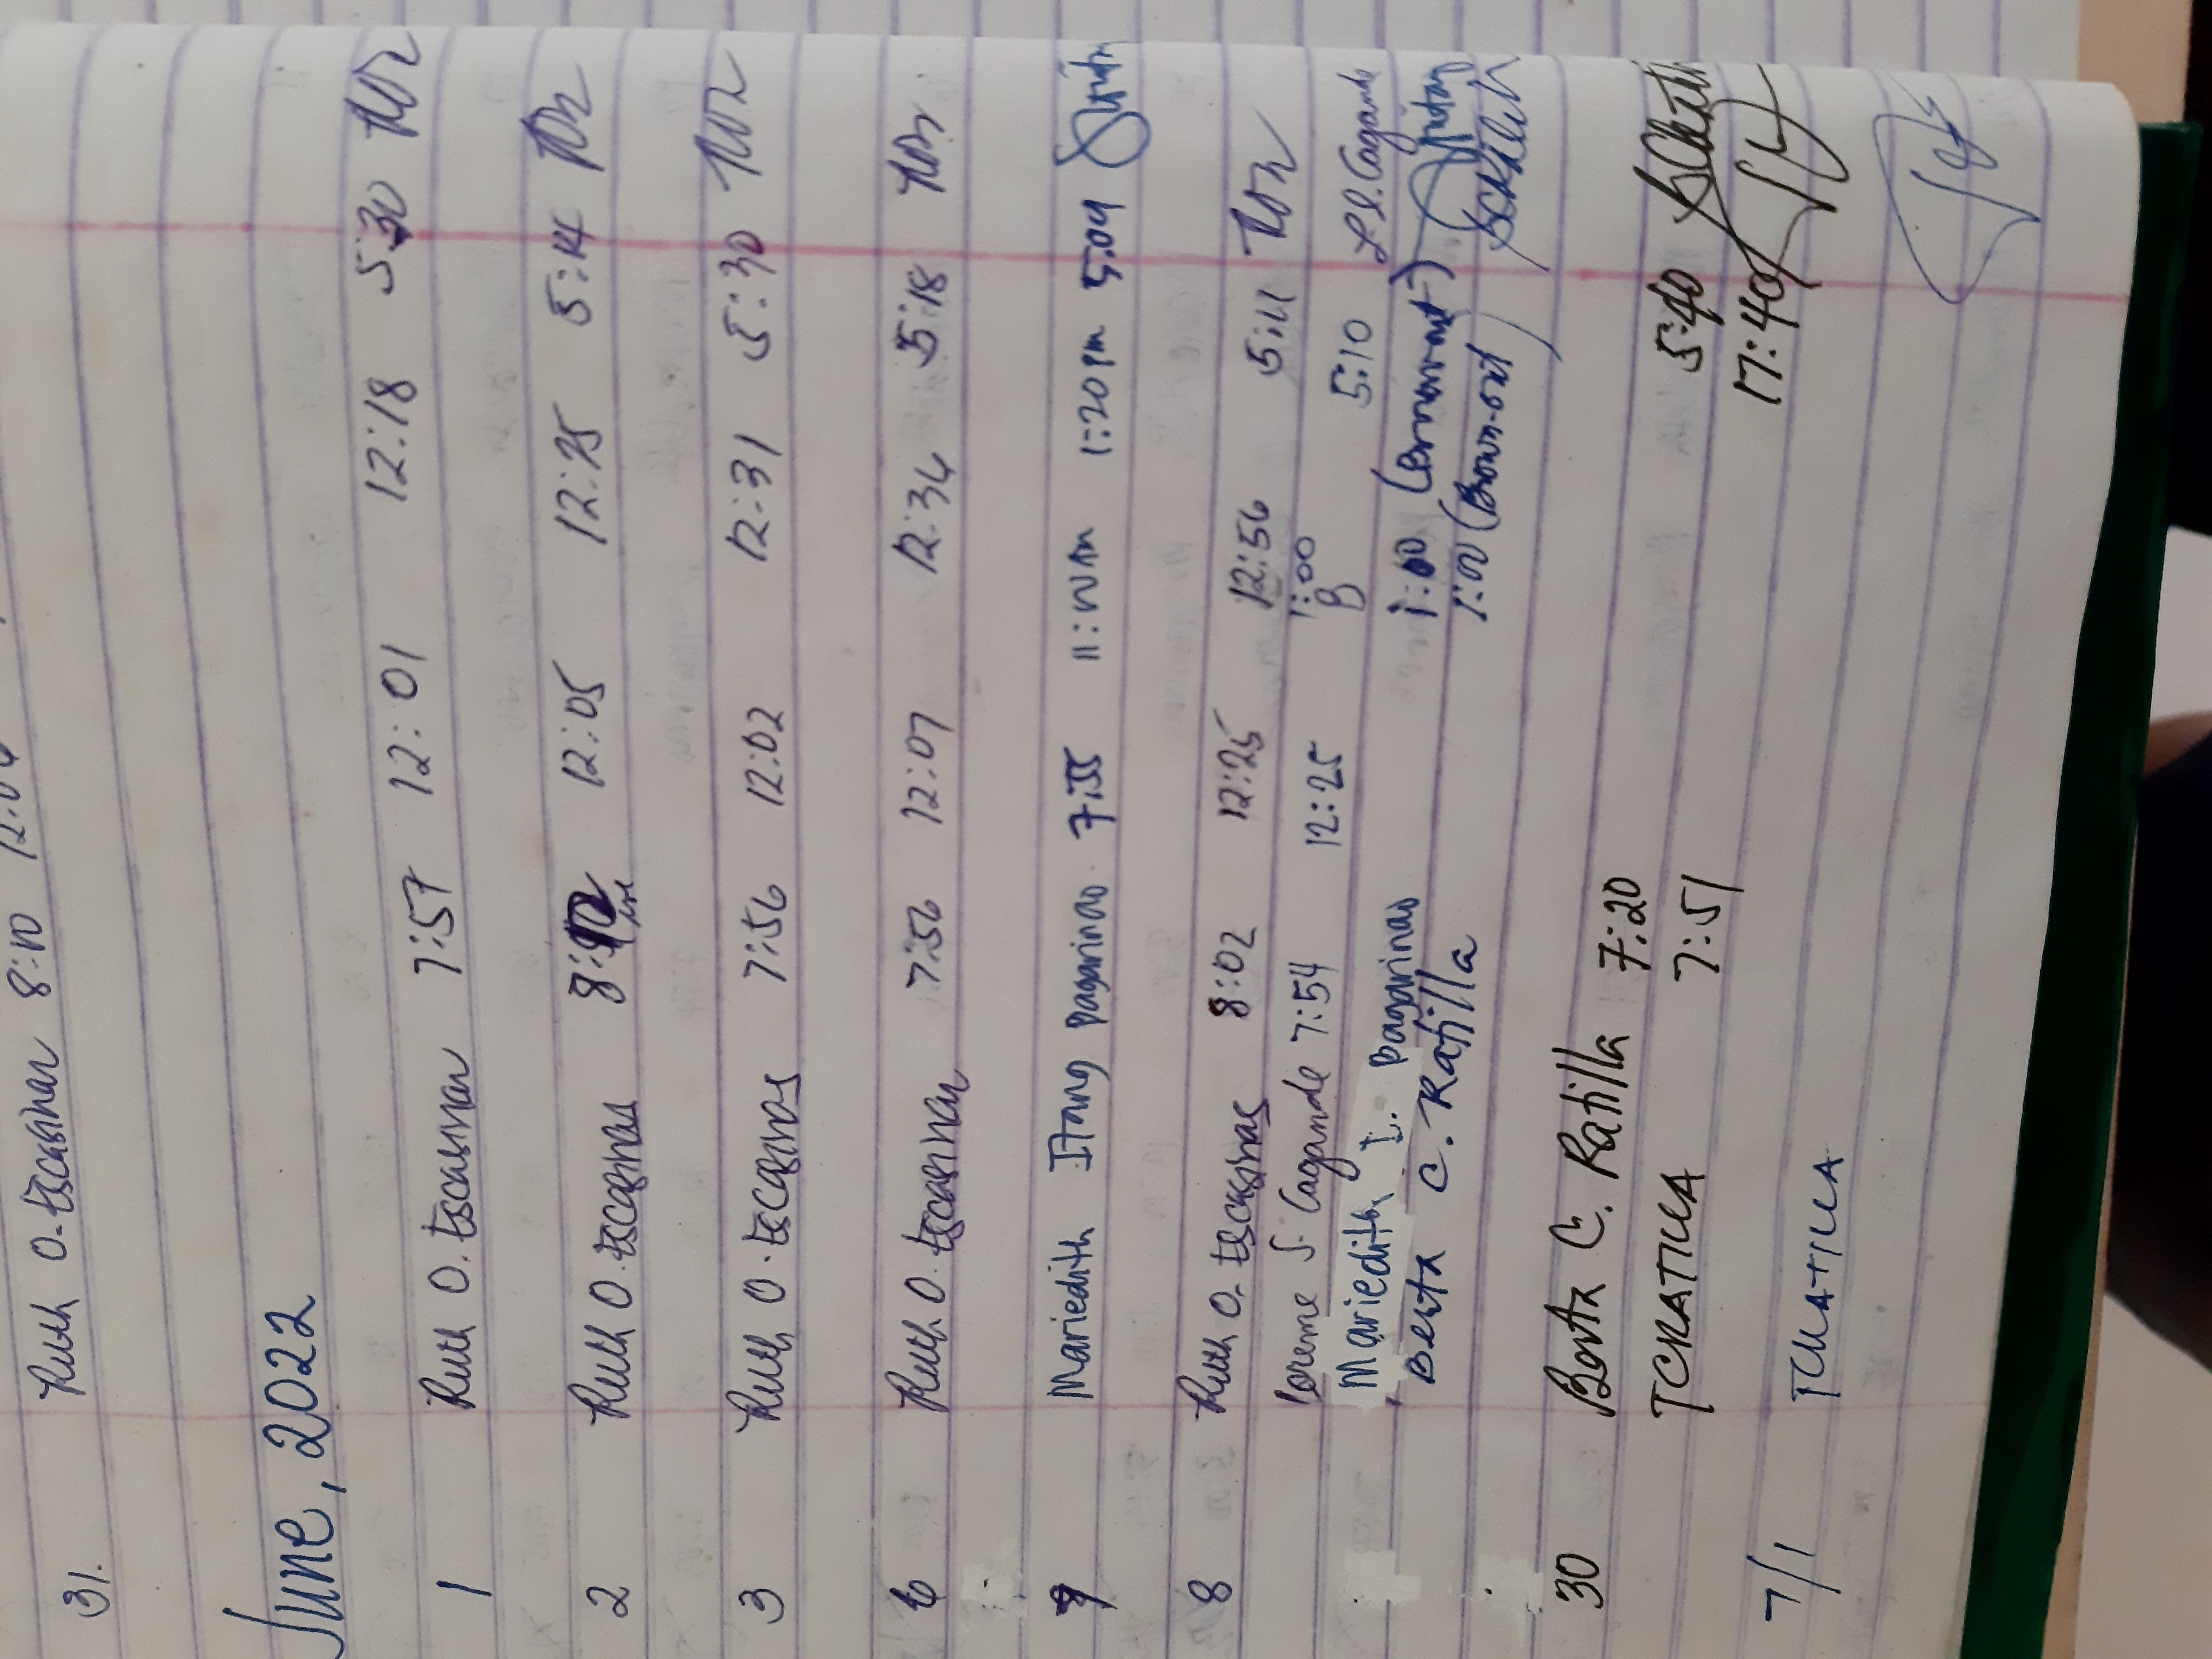 31. Ruth O. Escasinas 8:10
June, 2022
1 Ruth O. Escasinas 7:57 12:01 12:18 5:30
2 Ruth O. Escasinas 12:05 12:25 5:14
3 Ruth O. Escasinas 7:56 12:02 12:31 5:30
6 Ruth O. Escasinas 7:56 12:07 12:34 5:18
7 Mariedith Itang Pagarinao 7:55 1:20 pm 5:09
8 Ruth O. Escasinas 8:02 12:25 12:56 5:11
Loreme S. Cagande 7:54 12:25 1:00 5:10 L.S. Cagande
Mariedith I. Pagarinao 1:00 (Brownout)
Berta C. Ratilla 1:00 (Brown-out)
30 Berta C. Ratilla 7:20 5:40
TCRATILLA 7:51 17:40
7/1 TCRATILLA